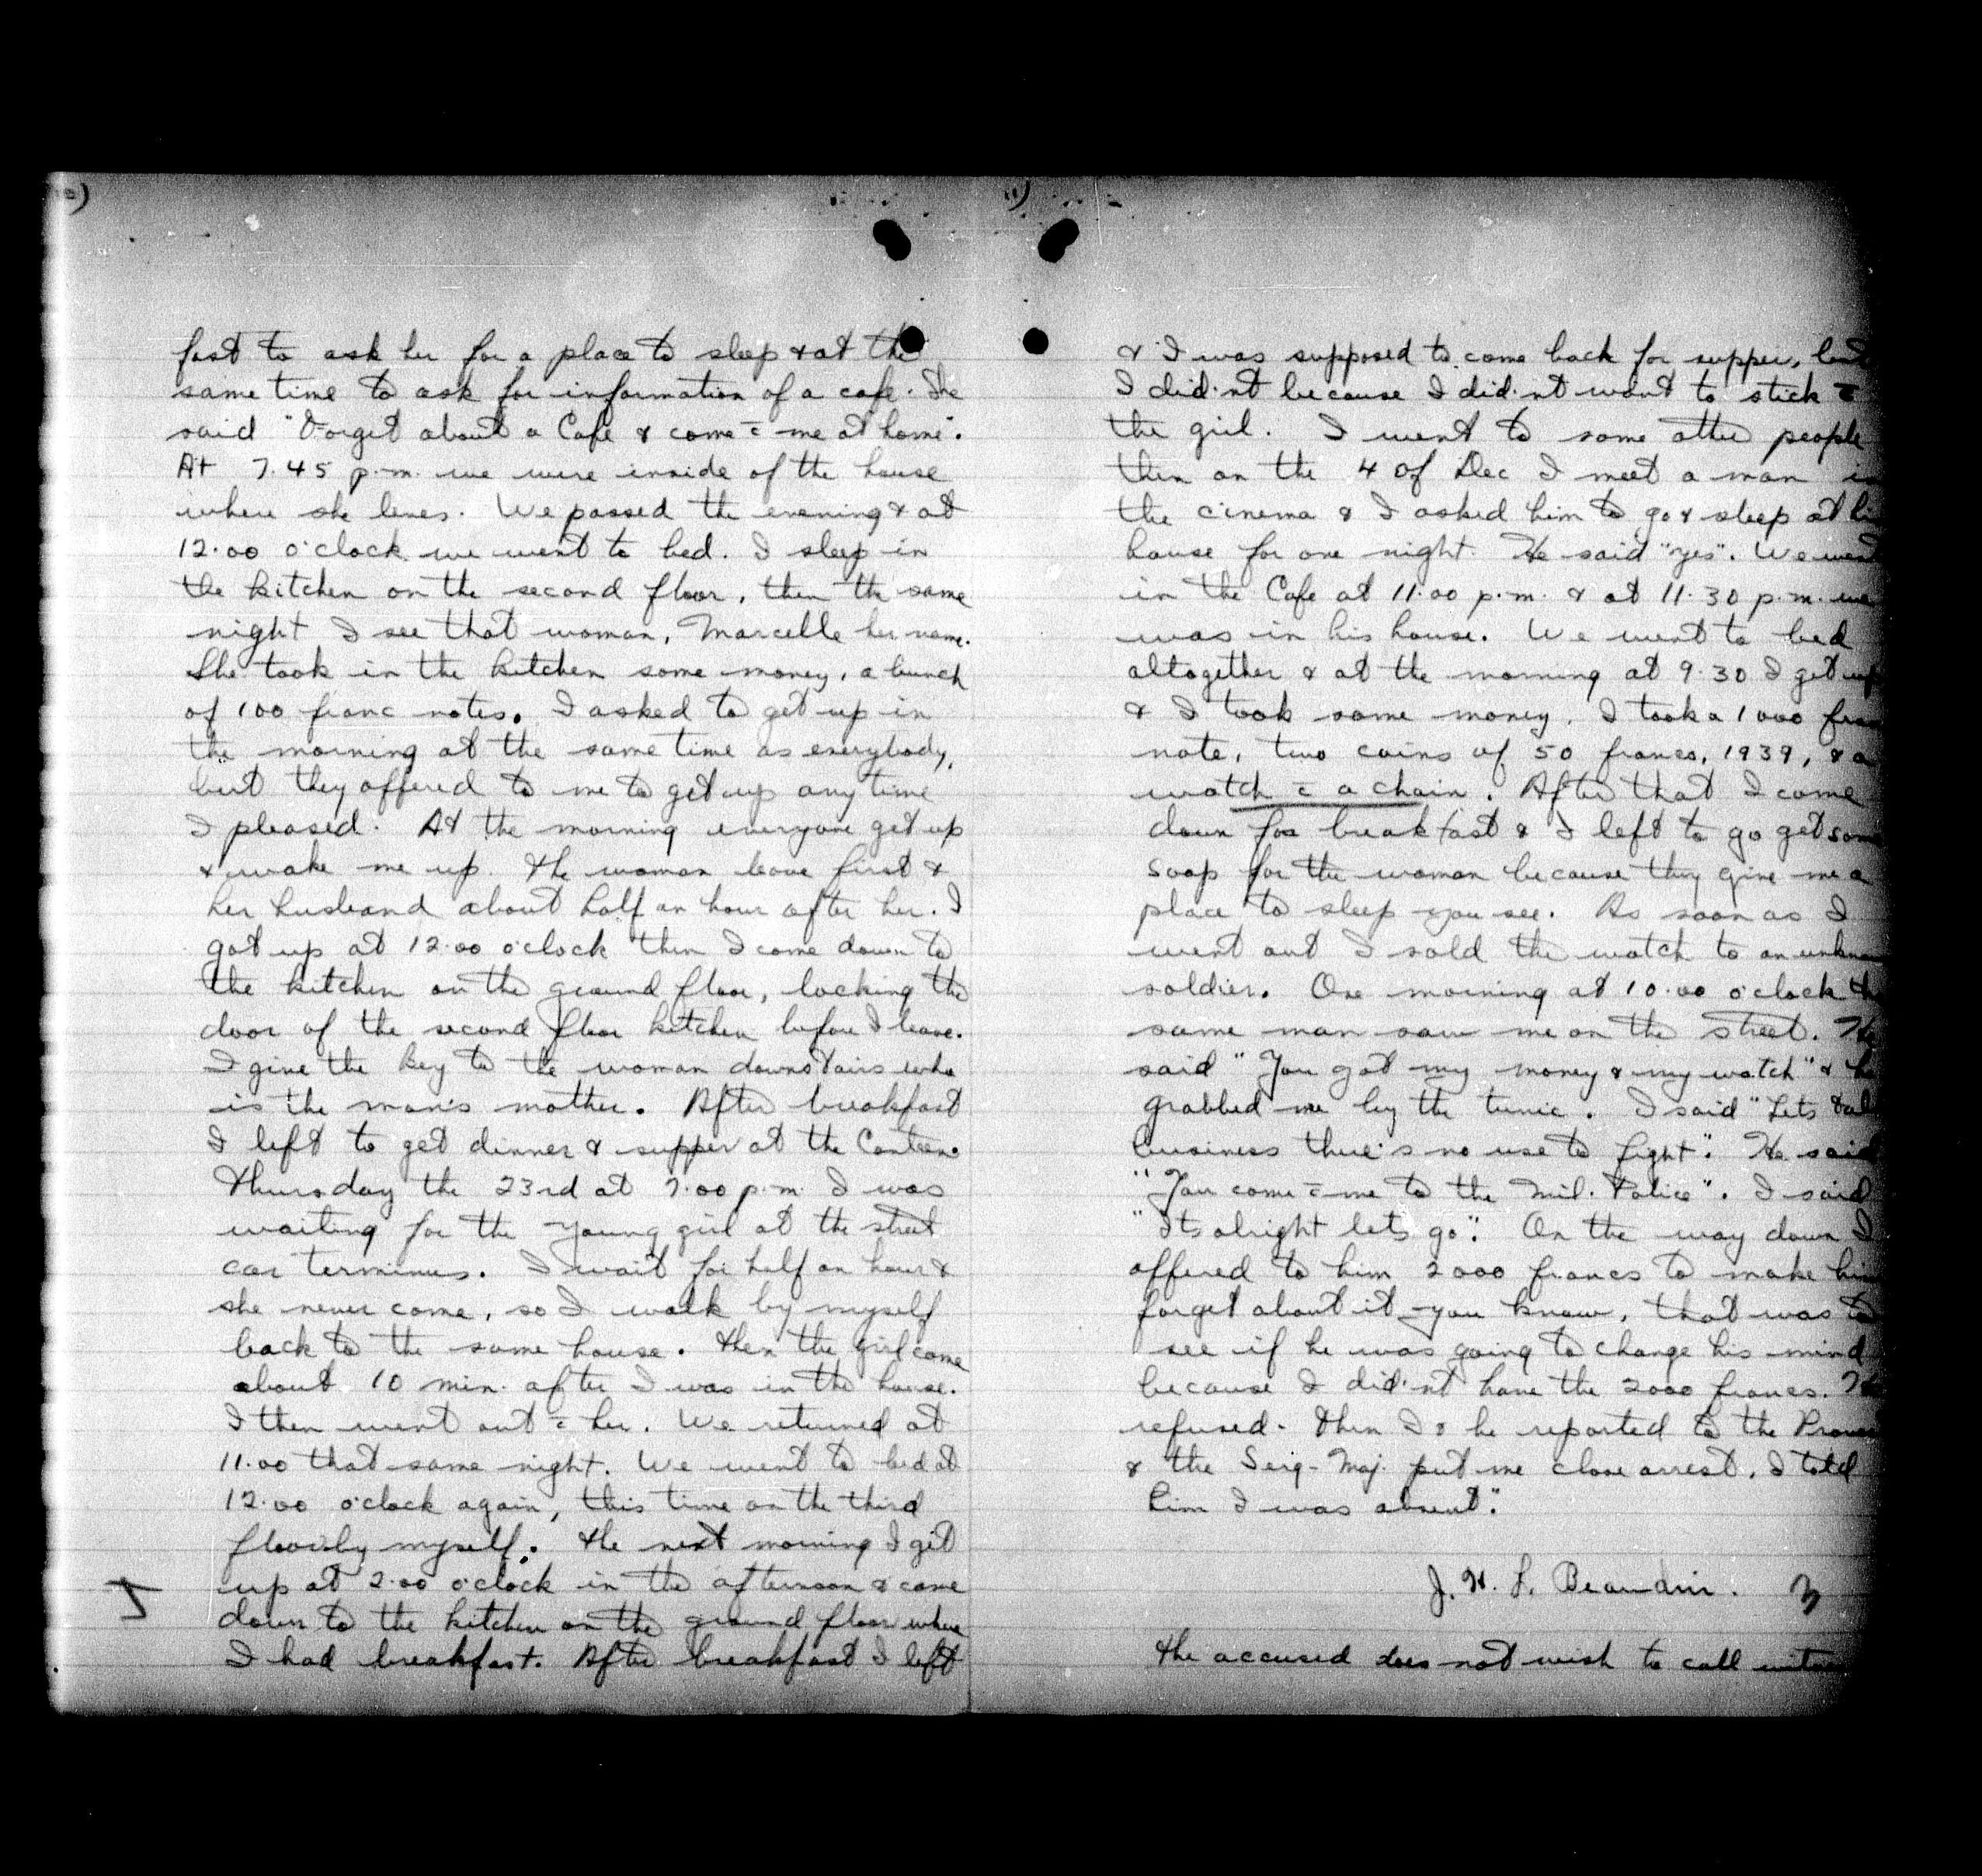 fast to ask her for a place to sleep & at the
same time to ask for information of a cafe. She
said "Forget about a Cafe & come c̄ me at home".
At 7.45 p.m. we were inside of the house
where she lives. We passed the evening & at
12.00 o'clock we went to bed. I sleep in
the kitchen on the second floor, then the same
night I see that woman, Marcelle her name.
She took in the kitchen some money, a bunch
of 100 franc notes. I asked to get up in
the morning at the same time as everybody,
but they offered to me to get up any time
I pleased. At the morning everyone get up
& wake me up. The woman leave first &
her husband about half an hour after her. I
got up at 12.00 o'clock then I come down to
the kitchen on the ground floor, locking the
door of the second floor kitchen before I leave.
I give the key to the woman downstairs who
is the man's mother. After breakfast
I left to get dinner & supper at the Canteen.
Thursday the 23rd at 7.00 p.m. I was
waiting for the young girl at the street
car terminus. I wait for half an hour &
she never come, so I walk by myself
back to the same house. Then the girl come
about 10 min. after I was in the house.
I then went out c̄ her. We returned at
11.00 that same night. We went to bed at
12.00 o'clock again, this time on the third
floor by myself. The next morning I get
up at 2.00 o'clock in the afternoon & came
down to the kitchen on the ground floor where
I had breakfast. After breakfast I left
11)
& I was supposed to come back for supper,
I did'nt because I did'nt want to stick c̄
the girl. I went to some other people
then on the 4 of Dec I meet a man
the cinema & I asked him to go & sleep at
house for one night. He said "yes". We went
in the Cafe at 11.00 p.m. & at 11.30 p.m. we
was in his house. We went to bed
altogether & at the morning at 9.30 I get up
& I took some money. I took a 1000
note, two coins of 50 francs, 1939, & a
watch c̄ a chain. After that I come
down for breakfast & I left to go get some
soap for the woman because they give me a
place to sleep you see. As soon as I
went out I sold the watch to an
soldier. One morning at 10.00 o'clock
same man saw me on the street.
said "You got my money & my watch" &
grabbed me by the tunic. I said "Lets
business there's no use to fight". He said
"You come c̄ me to the Mil. Police". I said
"Its alright lets go". On the way down I
offered to him 2000 francs to make
forget about it you know, that was to
see if he was going to change his mind
because I did'nt have the 2000 francs.
refused. Then I & he reported to the
& the Serg-Maj. put me close arrest. I told
him I was absent".
J. H. L. Beaudin.
The accused does not wish to call